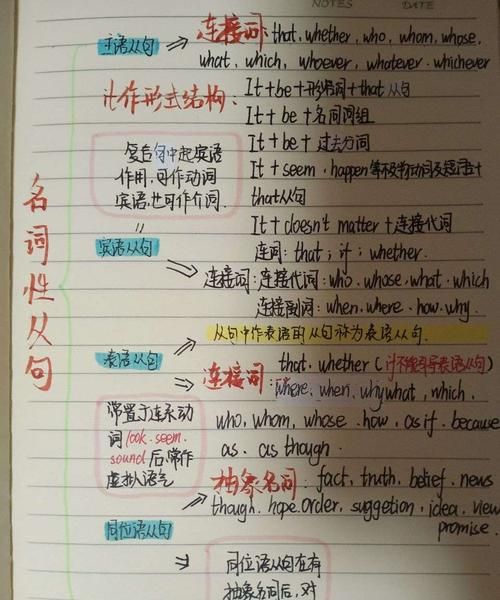 NOTES DATE
名词性从句
主语从句 ⇒ 连接词: that, whether, who, whom, whose,
what, which, whoever, whatever, whichever
it作形式结构: It + be + 形容词 + that 从句
It + be + 名词词组
It + be + 过去分词
It + seem, happen等不及物动词及短语 +
that从句
It + doesn't matter + 连接代词
复合句中起宾语
作用,可作动词
宾语,也可作介词.
宾语从句
连词: that; if; whether.
连接词: 连接代词: who, whose, what, which
连接副词: when, where, how, why.
表语从句
从句中作表语的从句称为表语从句.
that, whether (if不能引导表语从句)
连接词: where, when, why what, which,
who, whom, whose, how, as if, because
as, as though.
常置于连系动
词look, seem,
sound后,常作
虚拟语气
同位语从句
抽象名词: fact, truth, belief, news
though, hope, order, suggetion, idea, view
promise.
同位语从句在有
抽象名词后,对